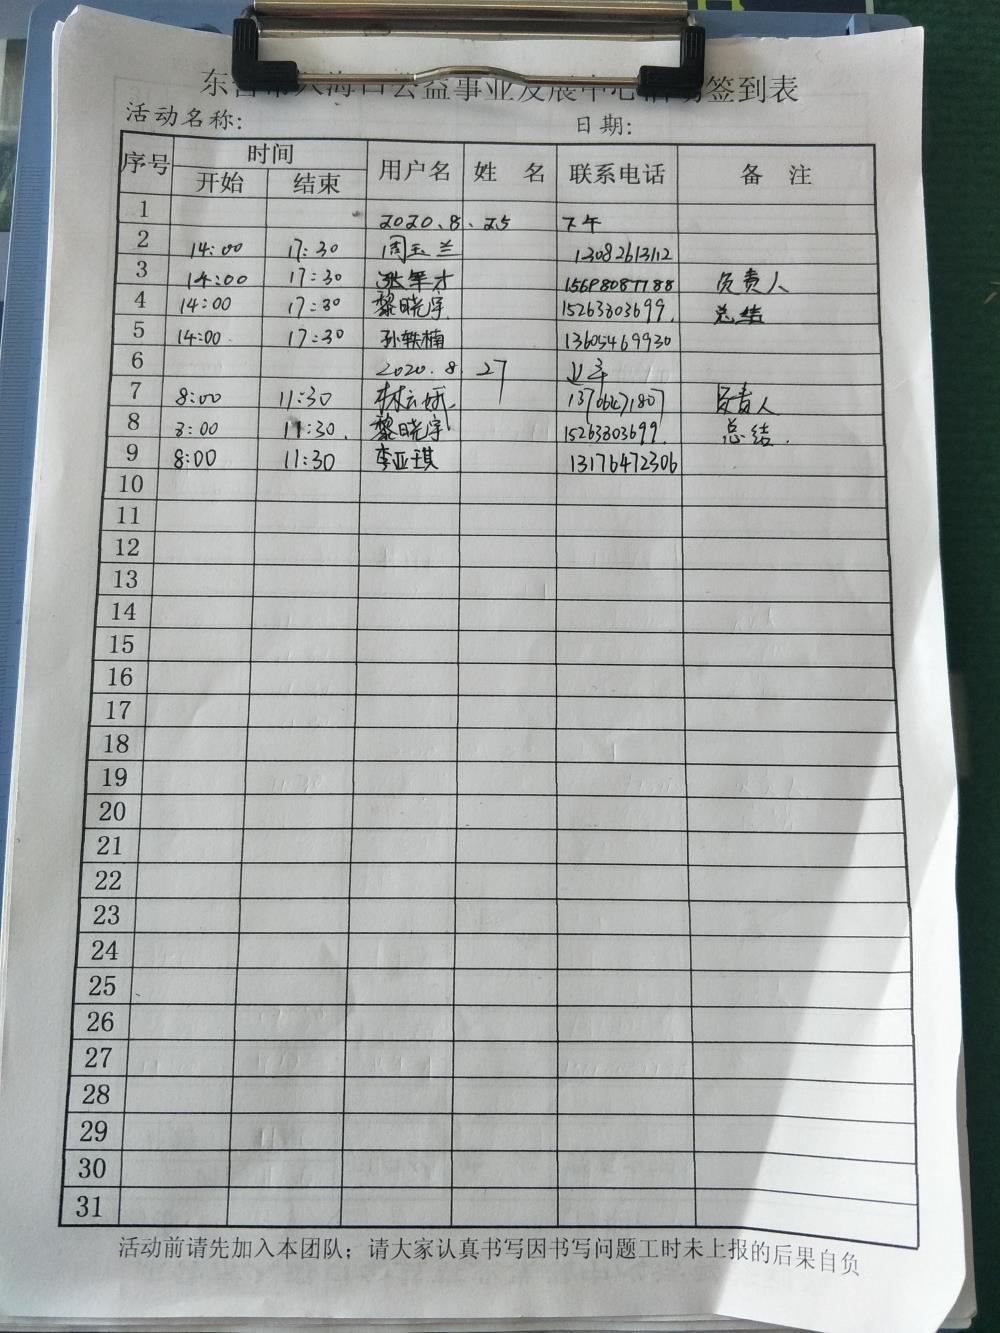 东营市入海口公益事业发展中心活动签到表
活动名称: 日期:
序号 时间 用户名 姓 名 联系电话 备 注
开始 结束
1 2020.8.25 下午
2 14:00 17:30 周玉兰 13082613112
3 14:00 17:30 张军才 负责人
4 14:00 17:30 黎晓宇 15263803699. 总结
5 14:00 17:30 孙轶楠 13605469930
6 2020.8.27 上午
7 8:00 11:30 林云娥 13706471807 负责人
8 8:00 11:30. 黎晓宇 15263803699. 总结.
9 8:00 11:30 李亚琪 13176472306
10
11
12
13
14
15
16
17
18
19
20
21
22
23
24
25
26
27
28
29
30
31
活动前请先加入本团队；请大家认真书写因书写问题工时未上报的后果自负